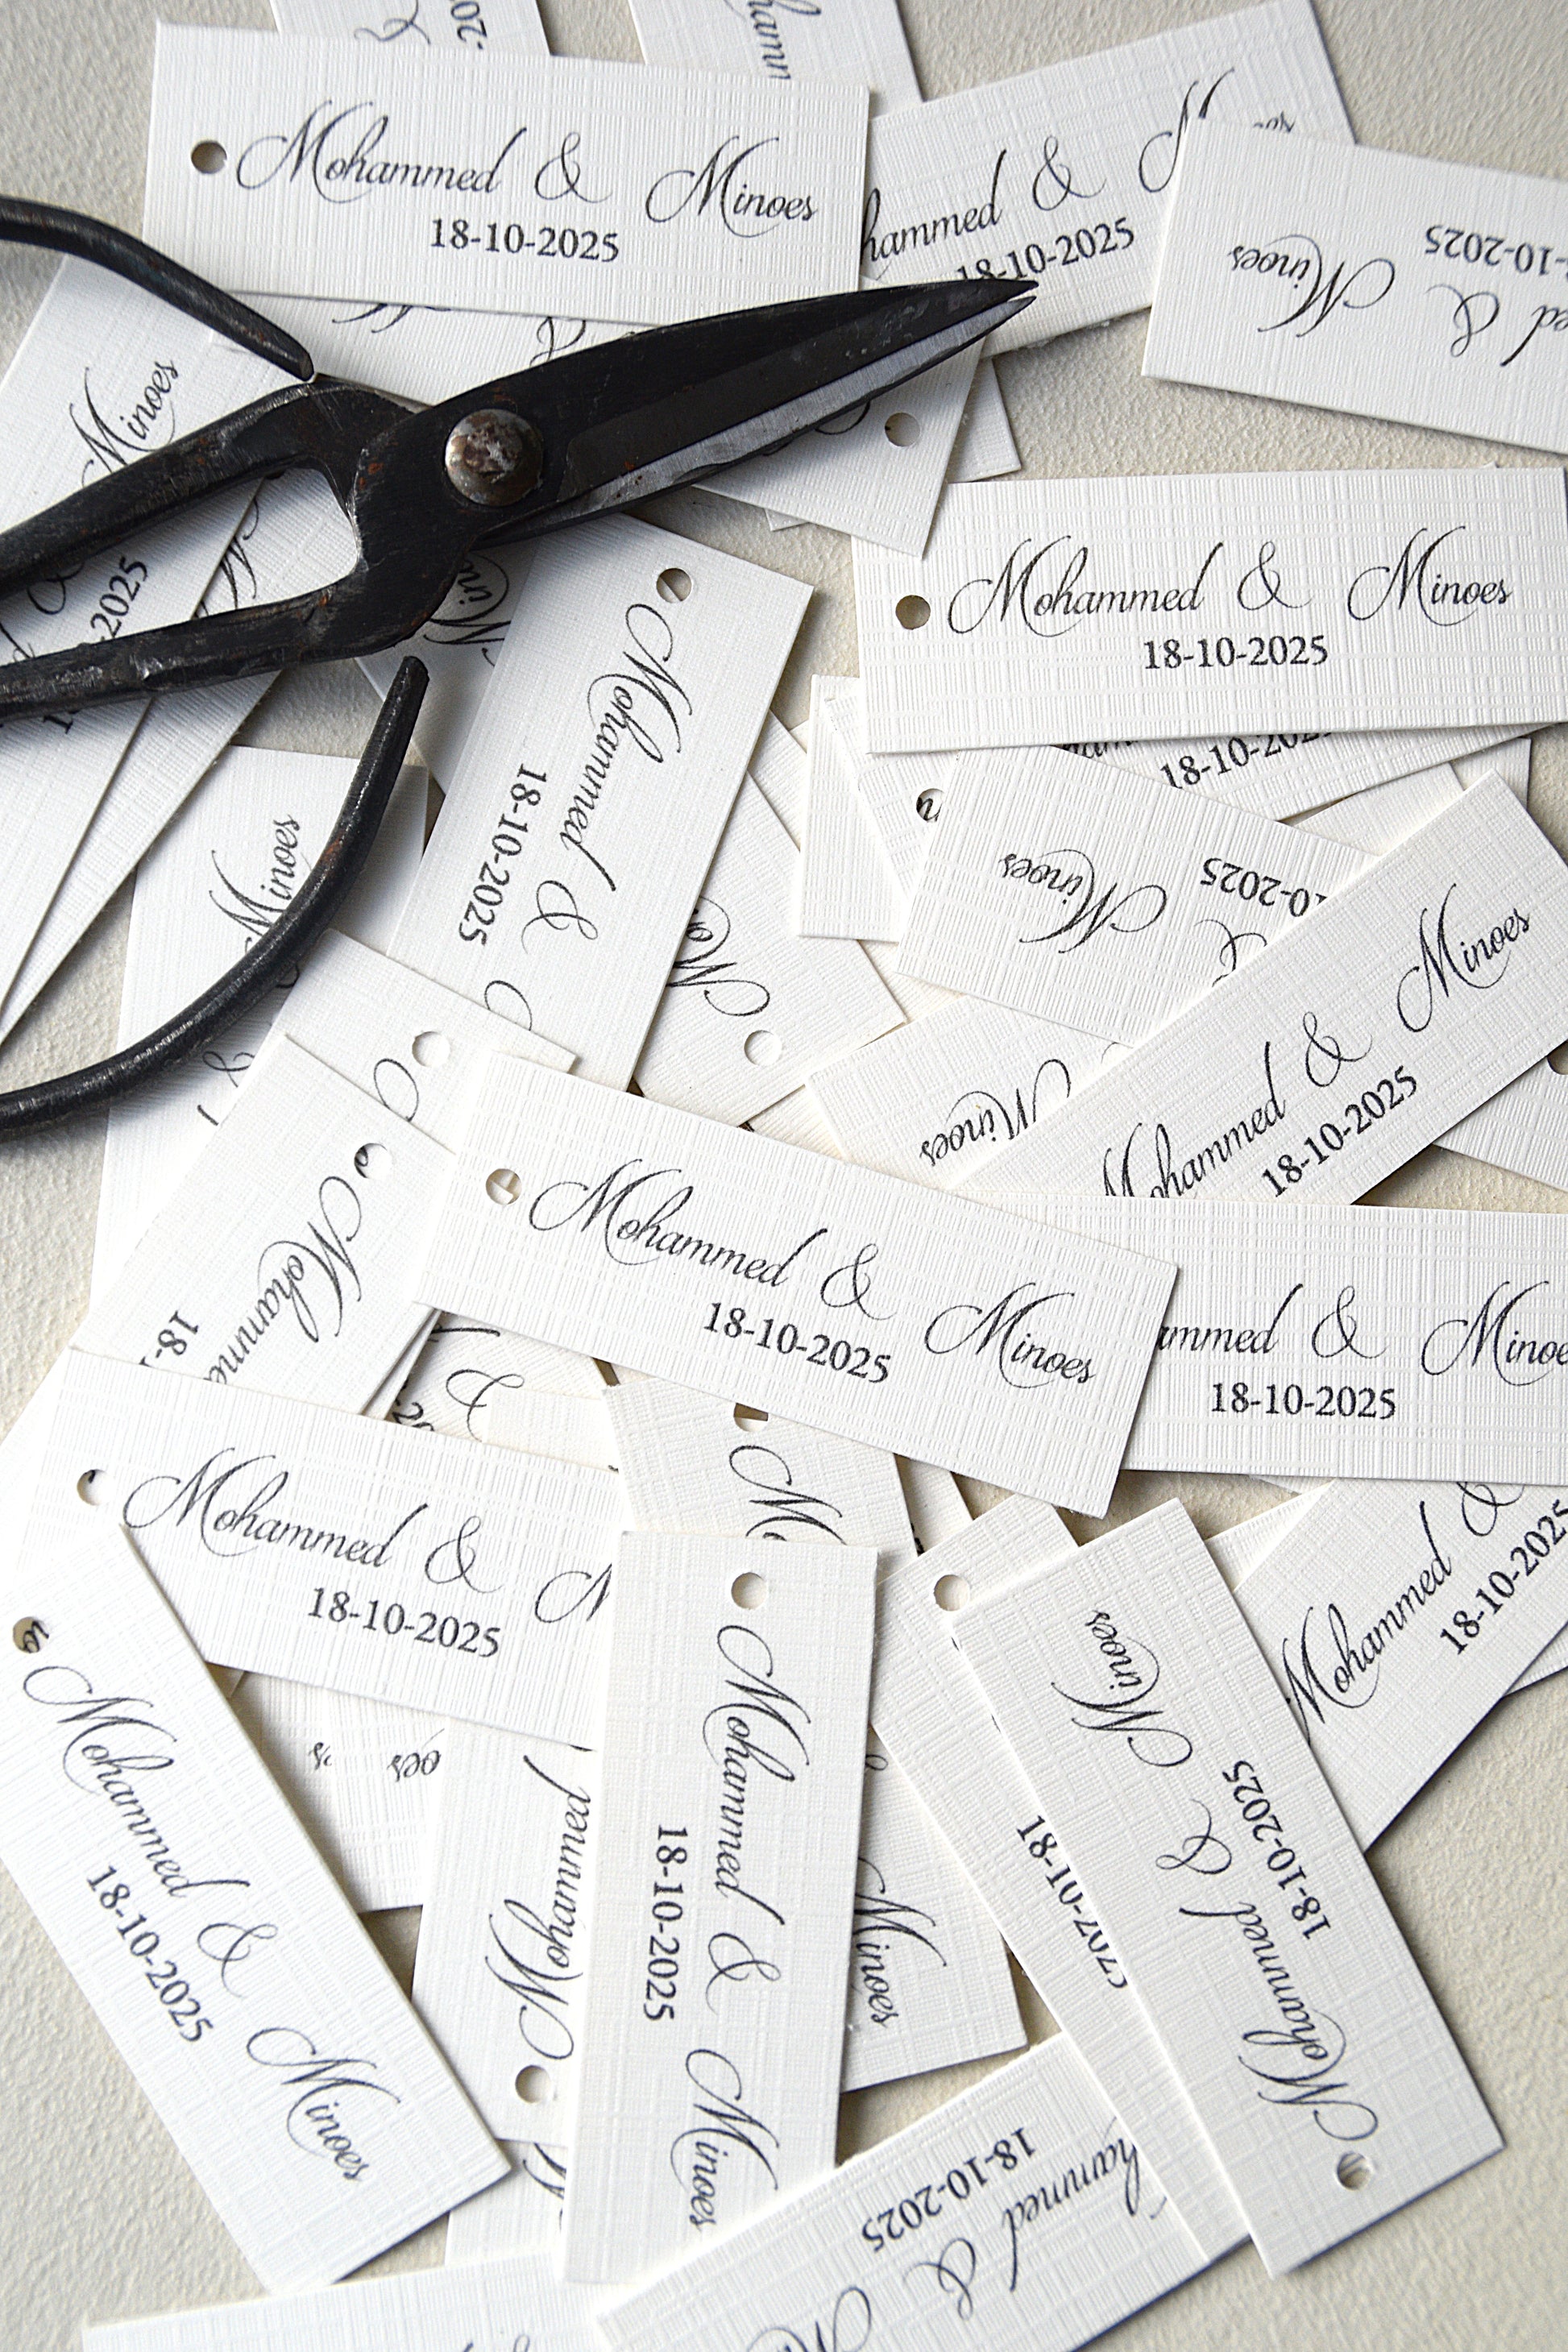 Mohammed & Minoes
18-10-2025
hammed & M
18-10-2025
Minoes
&
10-2025
Minoes
2025
Mohammed & Minoes
18-10-2025
Mohammed &
18-10-2025
18-10-202
Minoes
Minoes &
10-2025
Mohammed & Minoes
18-10-2025
Minoes
Mohammed & Minoes
18-10-2025
ammed & Minoe
18-10-2025
Mohamme
18-
Mohammed & M
18-10-2025
Mohammed &
18-10-2025
Mohammed & Minoes
18-10-2025
Mohammed
Mohammed & Minoes
18-10-2025
Minoes
18-10-2025
Mohammed & Minoes
18-10-2025
hammed &
18-10-2025